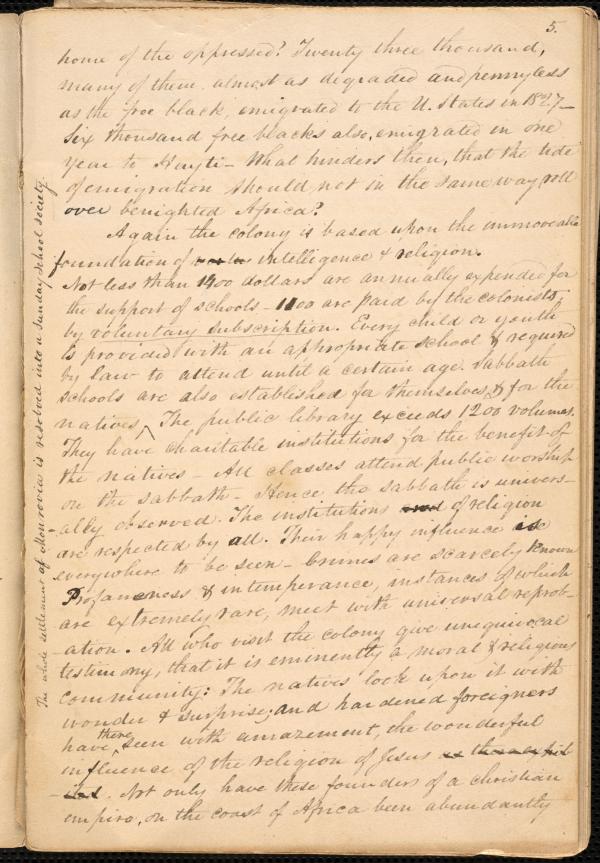 5.
home of the oppressed? Twenty three thousand,
many of them almost as degraded and pennyless
as the free black, emigrated to the U. States in 1827_
Six thousand free blacks also, emigrated in one
year to Hayti_ What hinders then, that the tide
of emigration should not in the same way roll
over benighted Africa?
Again the colony is based upon the immoveable
foundation of intelligence & religion.
Not less than 1400 dollars are annually expended for
the support of schools_ 1100 are paid by the colonists,
by voluntary subscription. Every child or youth
is provided with an appropriate school & required
by law to attend until a certain age. Sabbath
schools are also established for themselves, & for the
natives ^ The public library exceeds 1200 volumes.
They have charitable institutions for the benefit of
the natives_ All classes attend public worship
on the sabbath_ Hence the sabbath is univers-
-ally observed. The institutions of religion
are respected by all. Their happy influence is
everywhere to be seen_ Crimes are scarcely known
Profaneness & intemperance, instances of which
are extremely rare, meet with universal reprob-
-ation. All who visit the colony give unequivocal
testimony, that it is eminently a moral & religious
community: The natives look upon it with
wonder & surprise; and hardened foreigners
have ^there seen with amazement, the wonderful
influence of the religion of Jesus
Not only have these founders of a christian
empire, on the coast of Africa been abundantly
The whole settlement of Monrovia is resolved into a Sunday school society.